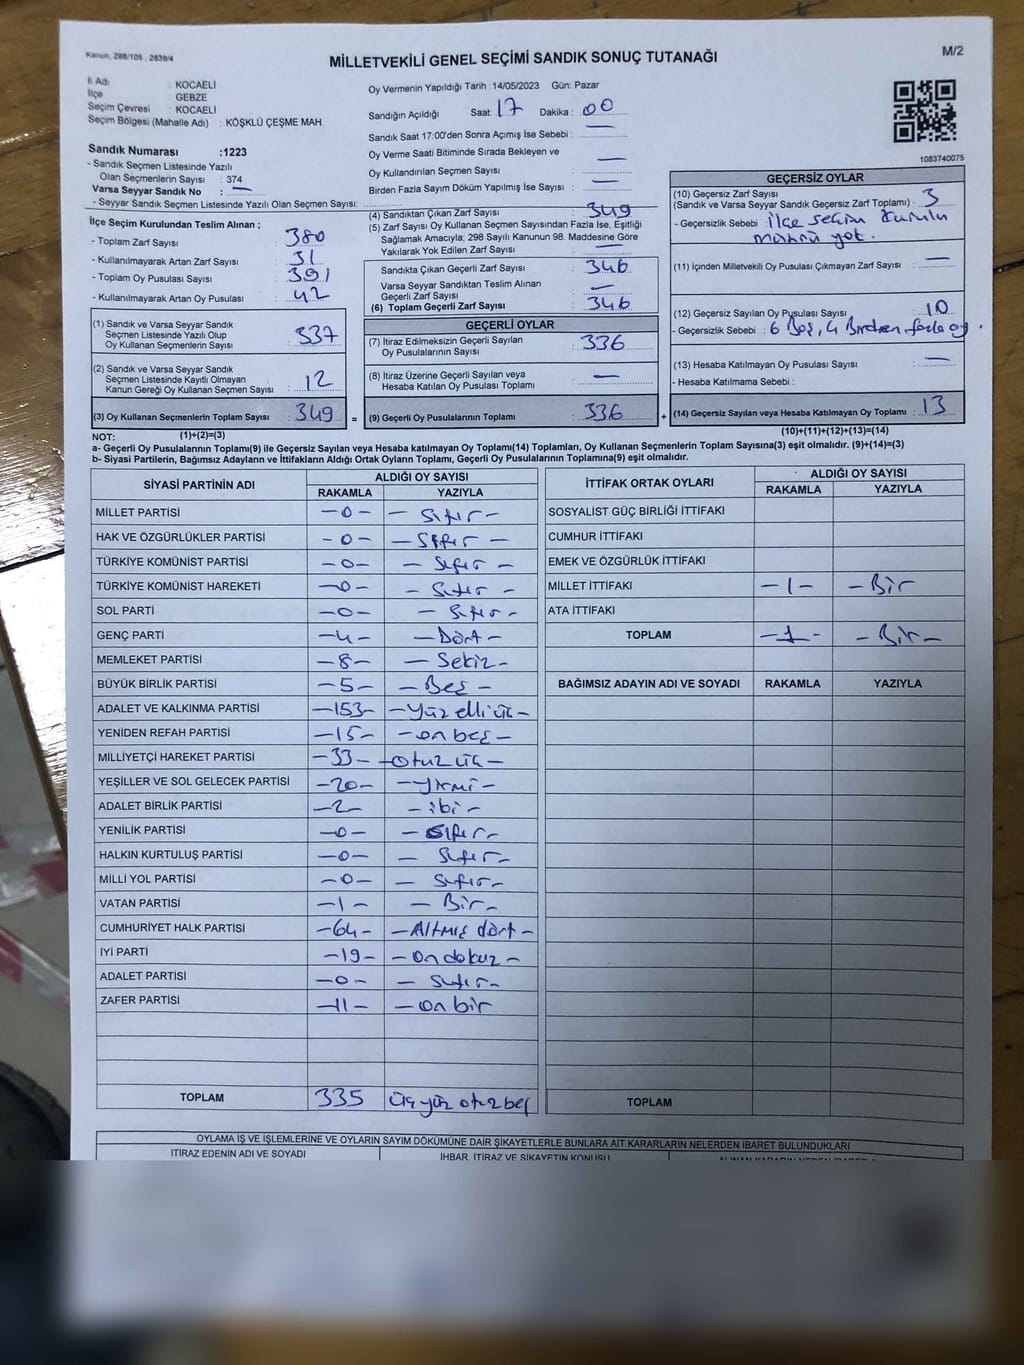 Kanun, 298/105 , 2839/4
M/2
MİLLETVEKİLİ GENEL SEÇİMİ SANDIK SONUÇ TUTANAĞI
İl Adı : KOCAELİ
İlçe : GEBZE
Seçim Çevresi : KOCAELİ
Seçim Bölgesi (Mahalle Adı) : KÖŞKLÜ ÇEŞME MAH.
Sandık Numarası :1223
- Sandık Seçmen Listesinde Yazılı
Olan Seçmenlerin Sayısı : 374
Varsa Seyyar Sandık No : —
- Seyyar Sandık Seçmen Listesinde Yazılı Olan Seçmen Sayısı:
Oy Vermenin Yapıldığı Tarih :14/05/2023 Gün: Pazar
Sandığın Açıldığı Saat: 17 Dakika : 00
Sandık Saat 17:00'den Sonra Açımış İse Sebebi : —
Oy Verme Saati Bitiminde Sırada Bekleyen ve
Oy Kullandırılan Seçmen Sayısı : —
Birden Fazla Sayım Döküm Yapılmış İse Sayısı : —
1083740075
İlçe Seçim Kurulundan Teslim Alınan ;
- Toplam Zarf Sayısı : 380
- Kullanılmayarak Artan Zarf Sayısı : 31
- Toplam Oy Pusulası Sayısı : 391
- Kullanılmayarak Artan Oy Pusulası : 42
(1) Sandık ve Varsa Seyyar Sandık
Seçmen Listesinde Yazılı Olup
Oy Kullanan Seçmenlerin Sayısı : 337
(2) Sandık ve Varsa Seyyar Sandık
Seçmen Listesinde Kayıtlı Olmayan
Kanun Gereği Oy Kullanan Seçmen Sayısı : 12
(3) Oy Kullanan Seçmenlerin Toplam Sayısı : 349 =
(1)+(2)=(3)
(4) Sandıktan Çıkan Zarf Sayısı : 349
(5) Zarf Sayısı Oy Kullanan Seçmen Sayısından Fazla İse, Eşitliği
Sağlamak Amacıyla; 298 Sayılı Kanunun 98. Maddesine Göre
Yakılarak Yok Edilen Zarf Sayısı : —
Sandıkta Çıkan Geçerli Zarf Sayısı : 346
Varsa Seyyar Sandıktan Teslim Alınan
Geçerli Zarf Sayısı : —
(6) Toplam Geçerli Zarf Sayısı : 346
GEÇERLİ OYLAR
(7) İtiraz Edilmeksizin Geçerli Sayılan
Oy Pusulalarının Sayısı : 336
(8) İtiraz Üzerine Geçerli Sayılan veya
Hesaba Katılan Oy Pusulası Toplamı : —
(9) Geçerli Oy Pusulalarının Toplamı : 336 +
GEÇERSİZ OYLAR
(10) Geçersiz Zarf Sayısı
(Sandık ve Varsa Seyyar Sandık Geçersiz Zarf Toplamı) : 3
- Geçersizlik Sebebi : ilçe seçim kurulu
mührü yok.
(11) İçinden Milletvekili Oy Pusulası Çıkmayan Zarf Sayısı : —
(12) Geçersiz Sayılan Oy Pusulası Sayısı : 10
- Geçersizlik Sebebi : 6 Boş, 4 Birden fazla oy.
(13) Hesaba Katılmayan Oy Pusulası Sayısı : —
- Hesaba Katılmama Sebebi :
(14) Geçersiz Sayılan veya Hesaba Katılmayan Oy Toplamı : 13
(10)+(11)+(12)+(13)=(14)
NOT:
a- Geçerli Oy Pusulalarının Toplamı(9) ile Geçersiz Sayılan veya Hesaba katılmayan Oy Toplamı(14) Toplamları, Oy Kullanan Seçmenlerin Toplam Sayısına(3) eşit olmalıdır. (9)+(14)=(3)
b- Siyasi Partilerin, Bağımsız Adayların ve İttifakların Aldığı Ortak Oyların Toplamı, Geçerli Oy Pusulalarının Toplamına(9) eşit olmalıdır.
SİYASİ PARTİNİN ADI ALDIĞI OY SAYISI
RAKAMLA YAZIYLA
MİLLET PARTİSİ -0- -Sıfır-
HAK VE ÖZGÜRLÜKLER PARTİSİ -0- -Sıfır-
TÜRKİYE KOMÜNİST PARTİSİ -0- -Sıfır-
TÜRKİYE KOMÜNİST HAREKETİ -0- -Sıfır-
SOL PARTİ -0- -Sıfır-
GENÇ PARTİ -4- -Dört-
MEMLEKET PARTİSİ -8- -Sekiz-
BÜYÜK BİRLİK PARTİSİ -5- -Beş-
ADALET VE KALKINMA PARTİSİ -153- -Yüz elli üç-
YENİDEN REFAH PARTİSİ -15- -on beş-
MİLLİYETÇİ HAREKET PARTİSİ -33- -otuz üç-
YEŞİLLER VE SOL GELECEK PARTİSİ -20- -yirmi-
ADALET BİRLİK PARTİSİ -2- -iki-
YENİLİK PARTİSİ -0- -Sıfır-
HALKIN KURTULUŞ PARTİSİ -0- -Sıfır-
MİLLİ YOL PARTİSİ -0- -Sıfır-
VATAN PARTİSİ -1- -Bir-
CUMHURİYET HALK PARTİSİ -64- -Altmış dört-
İYİ PARTİ -19- -on dokuz-
ADALET PARTİSİ -0- -Sıfır-
ZAFER PARTİSİ -11- -on bir
TOPLAM 335 üç yüz otuz beş
İTTİFAK ORTAK OYLARI ALDIĞI OY SAYISI
RAKAMLA YAZIYLA
SOSYALİST GÜÇ BİRLİĞİ İTTİFAKI
CUMHUR İTTİFAKI
EMEK VE ÖZGÜRLÜK İTTİFAKI
MİLLET İTTİFAKI -1- -Bir
ATA İTTİFAKI
TOPLAM -1- -Bir-
BAĞIMSIZ ADAYIN ADI VE SOYADI RAKAMLA YAZIYLA
TOPLAM
OYLAMA İŞ VE İŞLEMLERİNE VE OYLARIN SAYIM DÖKÜMÜNE DAİR ŞİKAYETLERLE BUNLARA AİT KARARLARIN NELERDEN İBARET BULUNDUKLARI
İTİRAZ EDENİN ADI VE SOYADI İHBAR, İTİRAZ VE ŞİKAYETİN KONUSU